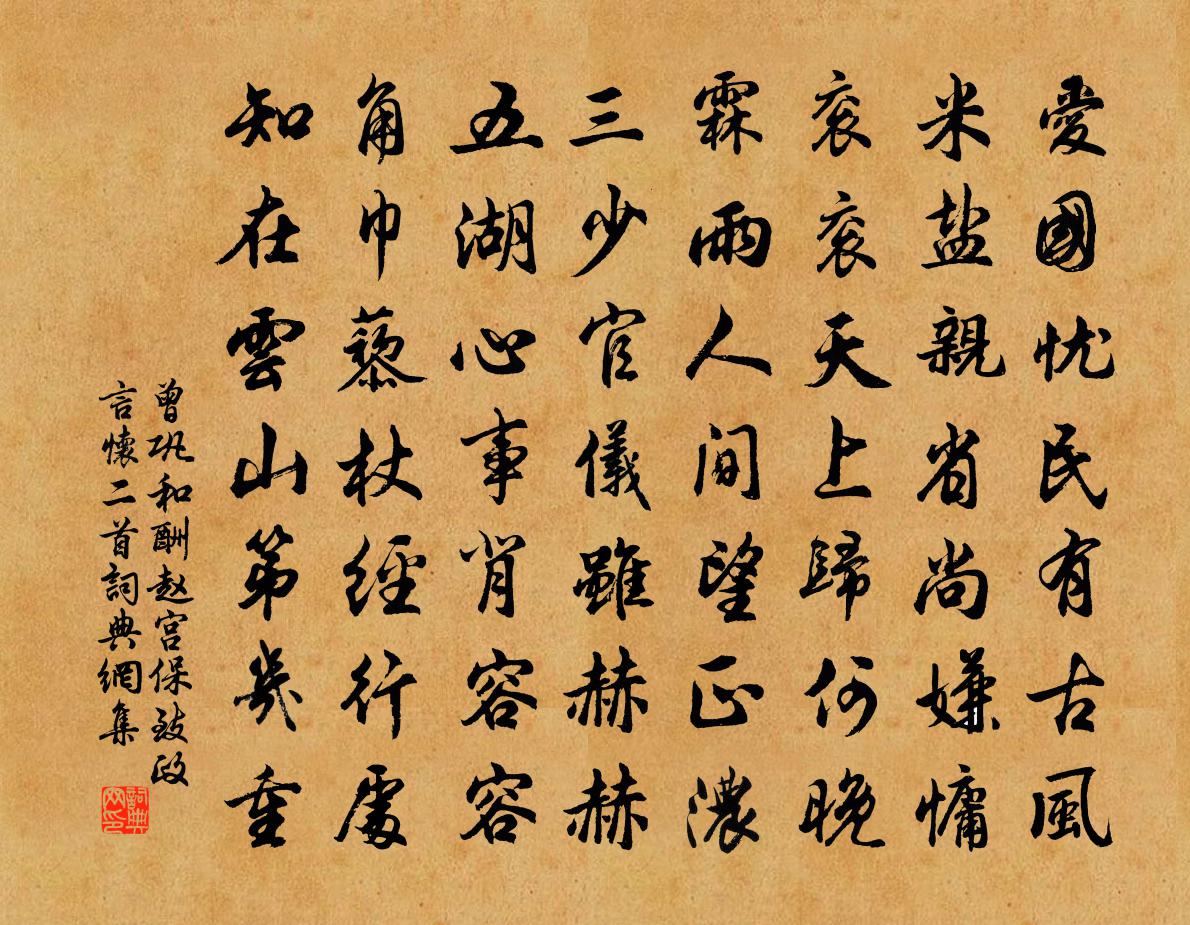 愛國忧民有古風
米盐親省尚嫌慵
衮衮天上歸何晚
霖雨人間望正濃
三少官儀雖赫赫
五湖心事肯容容
角巾藜杖經行處
知在雲山第幾重
曾巩和酬赵宫保致政
言懷二首詞典網集
詞典网印